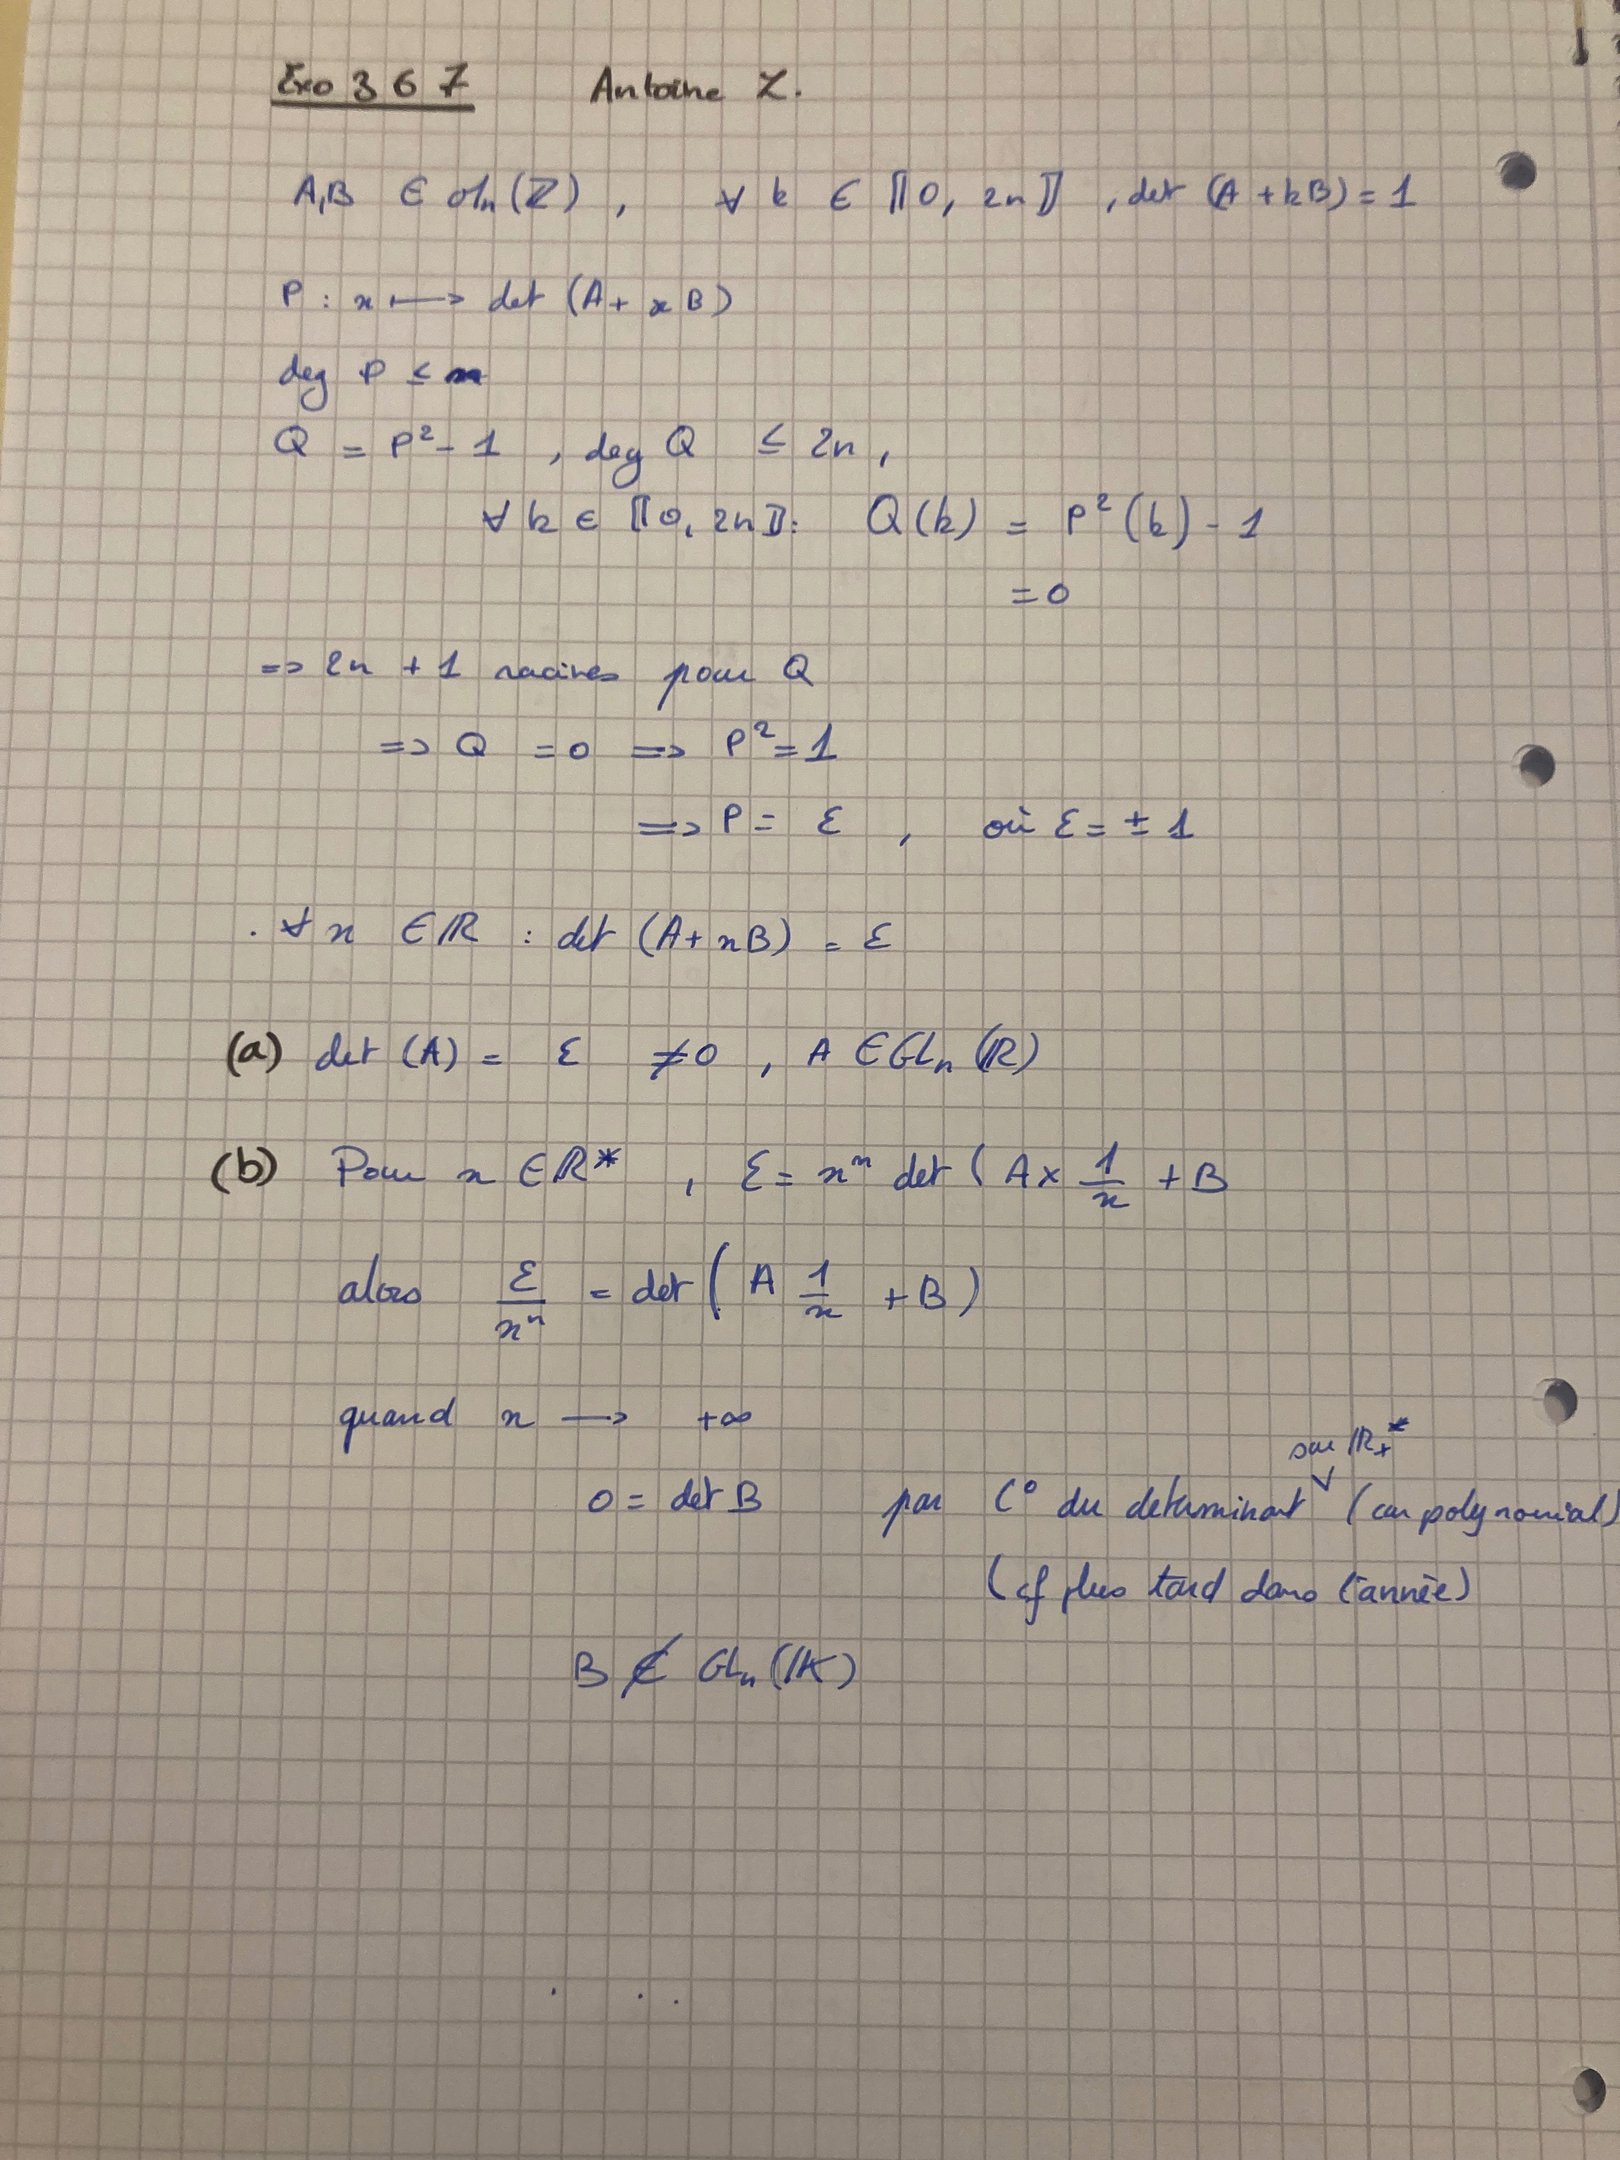 Exo 367 Antoine Z.
A,B ∈ Mn(ℤ), ∀ k ∈ ⟦0, 2n⟧, det (A + kB) = 1
P : x ↦ det (A + xB)
deg P ≤ n
Q = P² - 1, deg Q ≤ 2n,
∀ k ∈ ⟦0, 2n⟧: Q(k) = P²(k) - 1
= 0
=> 2n + 1 racines pour Q
=> Q = 0 => P² = 1
=> P = ε, où ε = ± 1
. ∀ x ∈ ℝ : det (A + xB) = ε
(a) det (A) = ε ≠ 0, A ∈ GLn(ℝ)
(b) Pour x ∈ ℝ*, ε = xⁿ det ( A × 1/x + B
alors ε/xⁿ = det ( A 1/x + B )
quand x → +∞
sur ℝ+*
0 = det B par C° du determinant (car polynomial)
(cf plus tard dans l'année)
B ∉ GLn(𝕂)